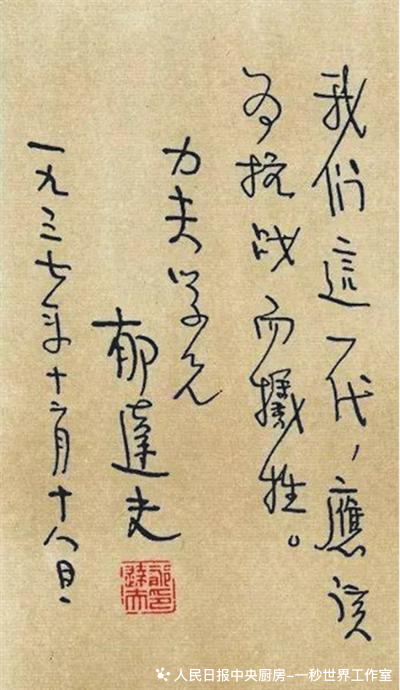 我们這一代，應该
为抗战而犧牲。
力夫学兄
郁達夫
一九三七年十二月十八日
郁印
達夫
人民日报中央厨房-一秒世界工作室